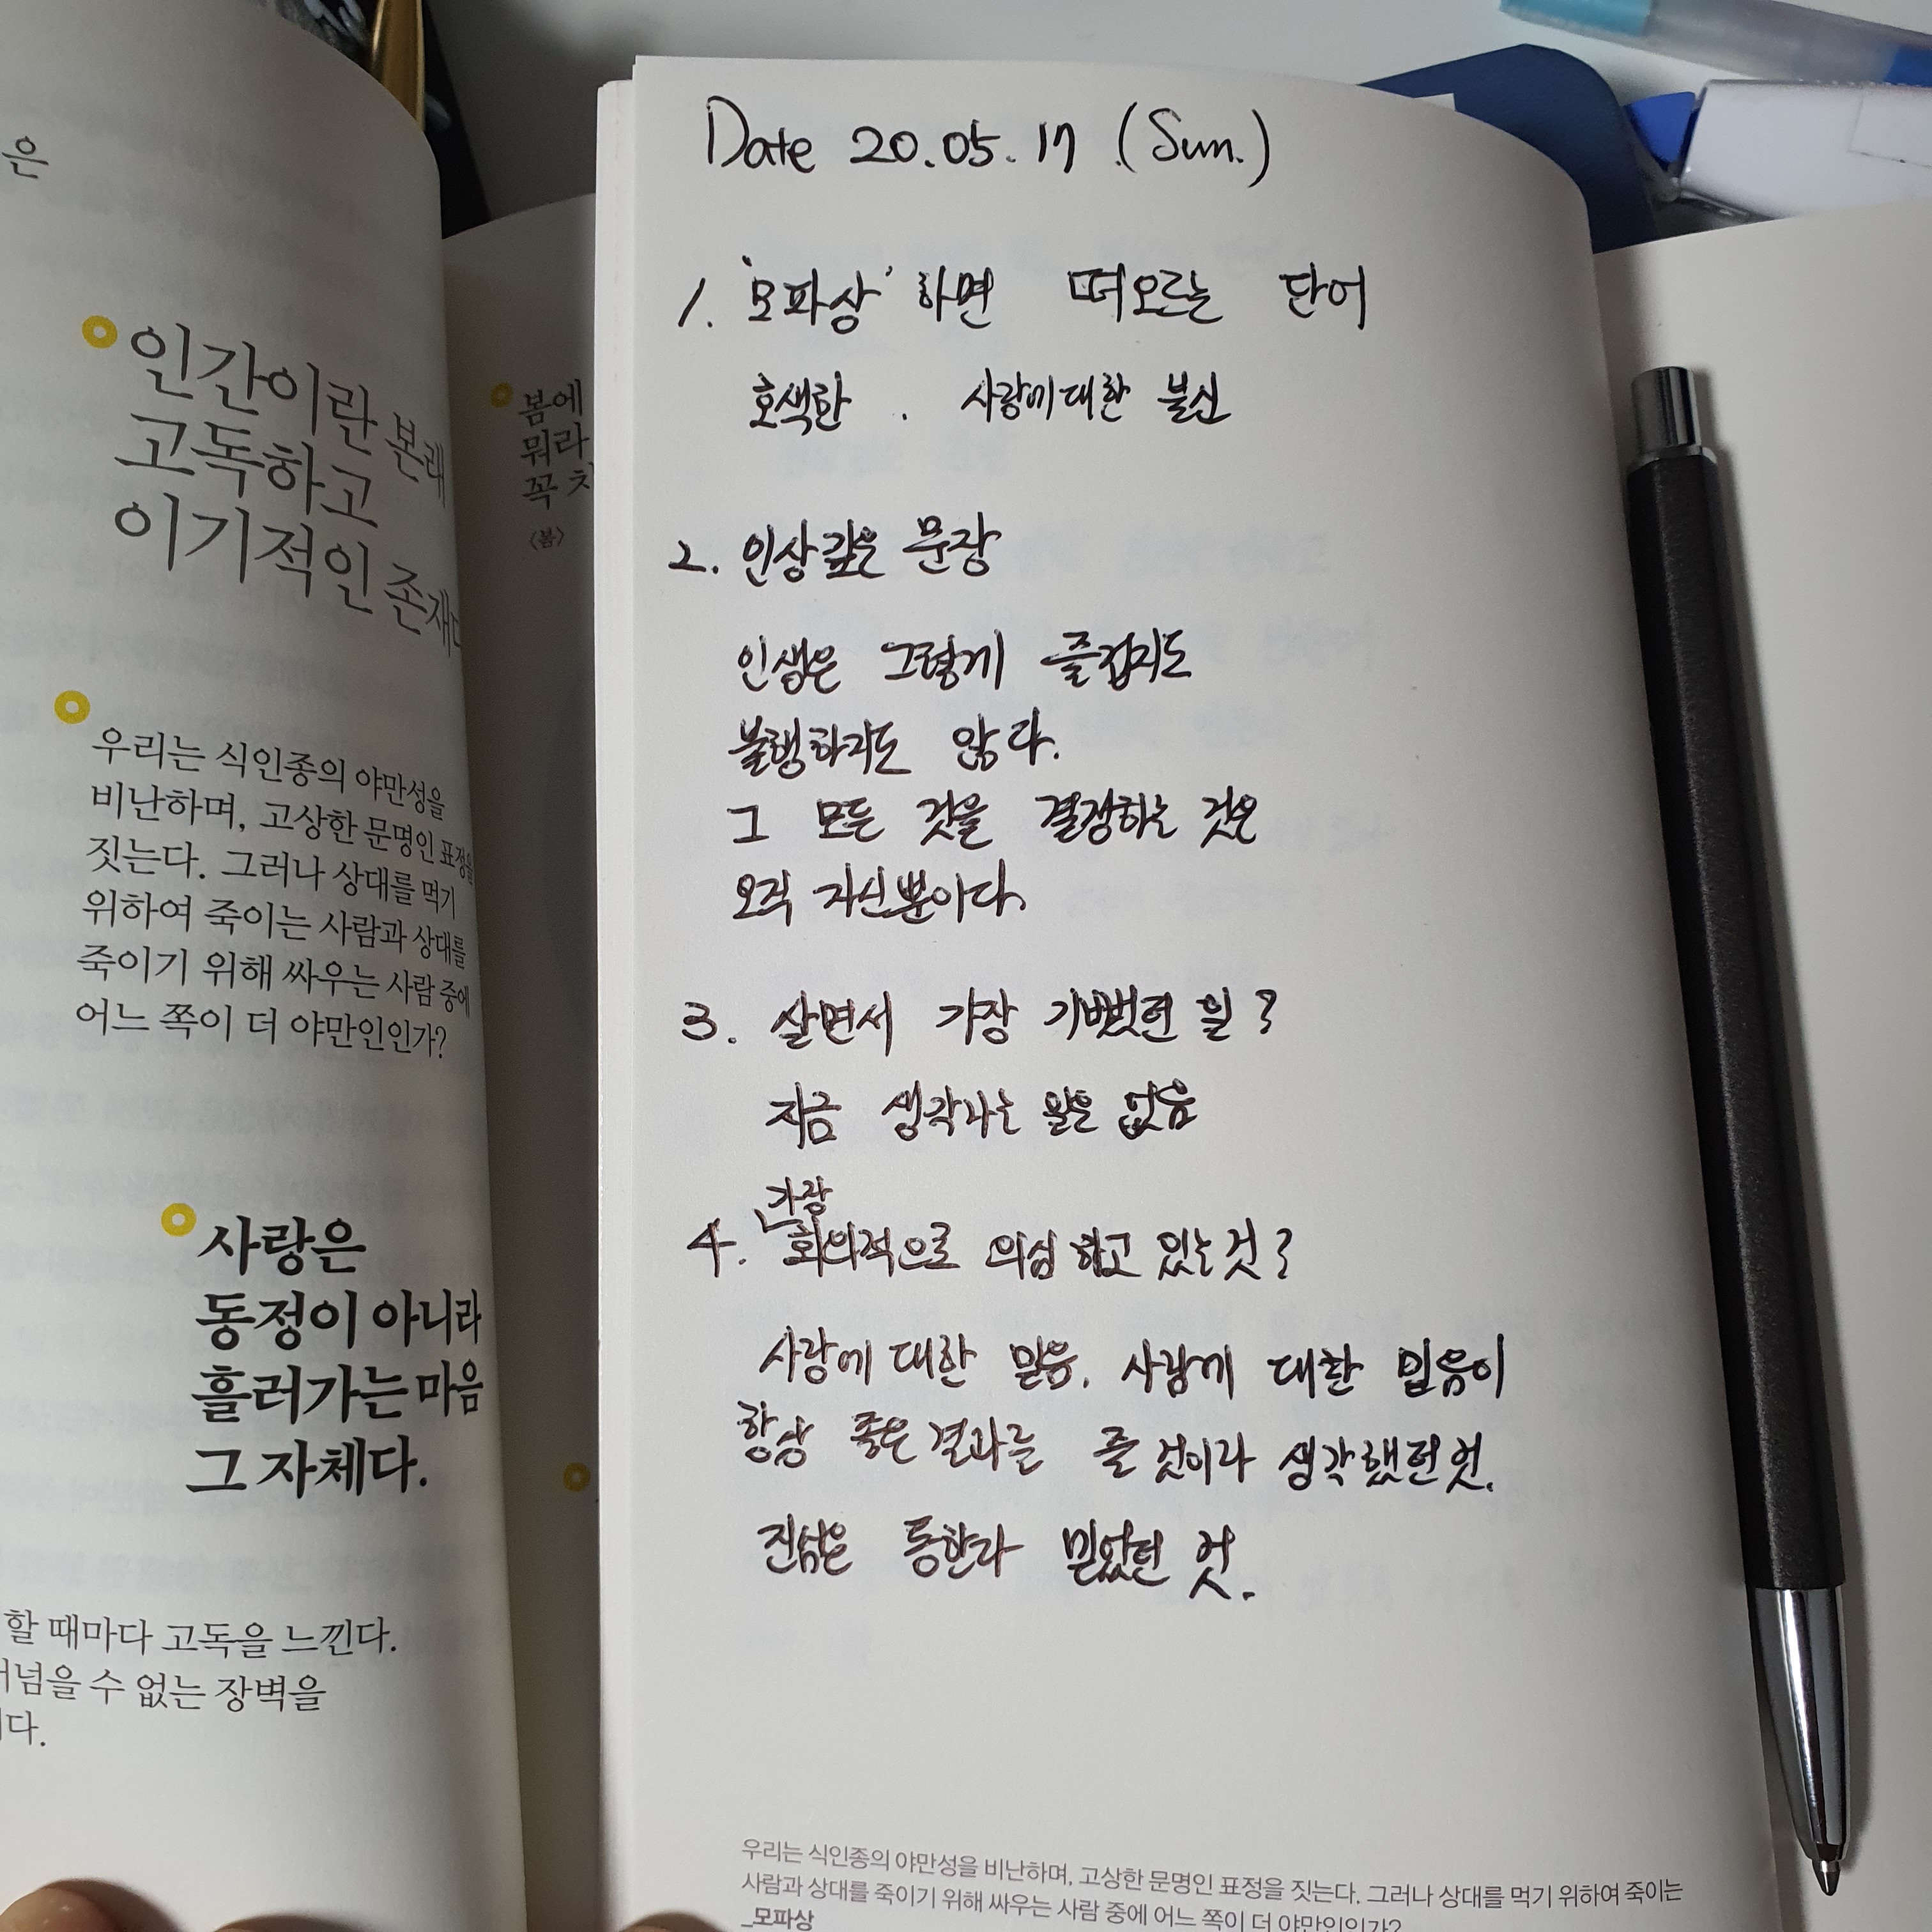 은
인간이란 본래
고독하고
이기적인
우리는 식인종의 야만성을
비난하며, 고상한 문명인 표정을
짓는다. 그러나 상대를 먹기
위하여 죽이는 사람과 상대를
죽이기 위해 싸우는 사람 중에
어느 쪽이 더 야만인인가?
사랑은
동정이 아니라
흘러가는 마음
그 자체다.
할 때마다 고독을 느낀다.
수 없는 장벽을
봄에
뭐라
꼭
<봄>
Date 20.05.17 (Sun.)
1. '모파상' 하면 떠오르는 단어
호색한 . 사랑에 대한 불신
2. 인상 깊은 문장
인생은 그렇게 즐겁지도
불행하지도 않다.
그 모든 것을 결정하는 것은
오직 자신뿐이다.
3. 살면서 가장 기뻤던 일?
지금 생각나는 일은 없음
가장
4. 회의적으로 의심하고 있는 것?
사랑에 대한 믿음. 대한 믿음이
항상 좋은 결과를 줄 것이라 생각했던 것.
진심은 통한다 믿었던 것.
우리는 식인종의 야만성을 비난하며, 고상한 문명인 표정을 짓는다. 그러나 상대를 먹기 위하여 죽이는
사람과 상대를 죽이기 위해 싸우는 사람 중에 어느 쪽이 더 야만인인가?
_모파상